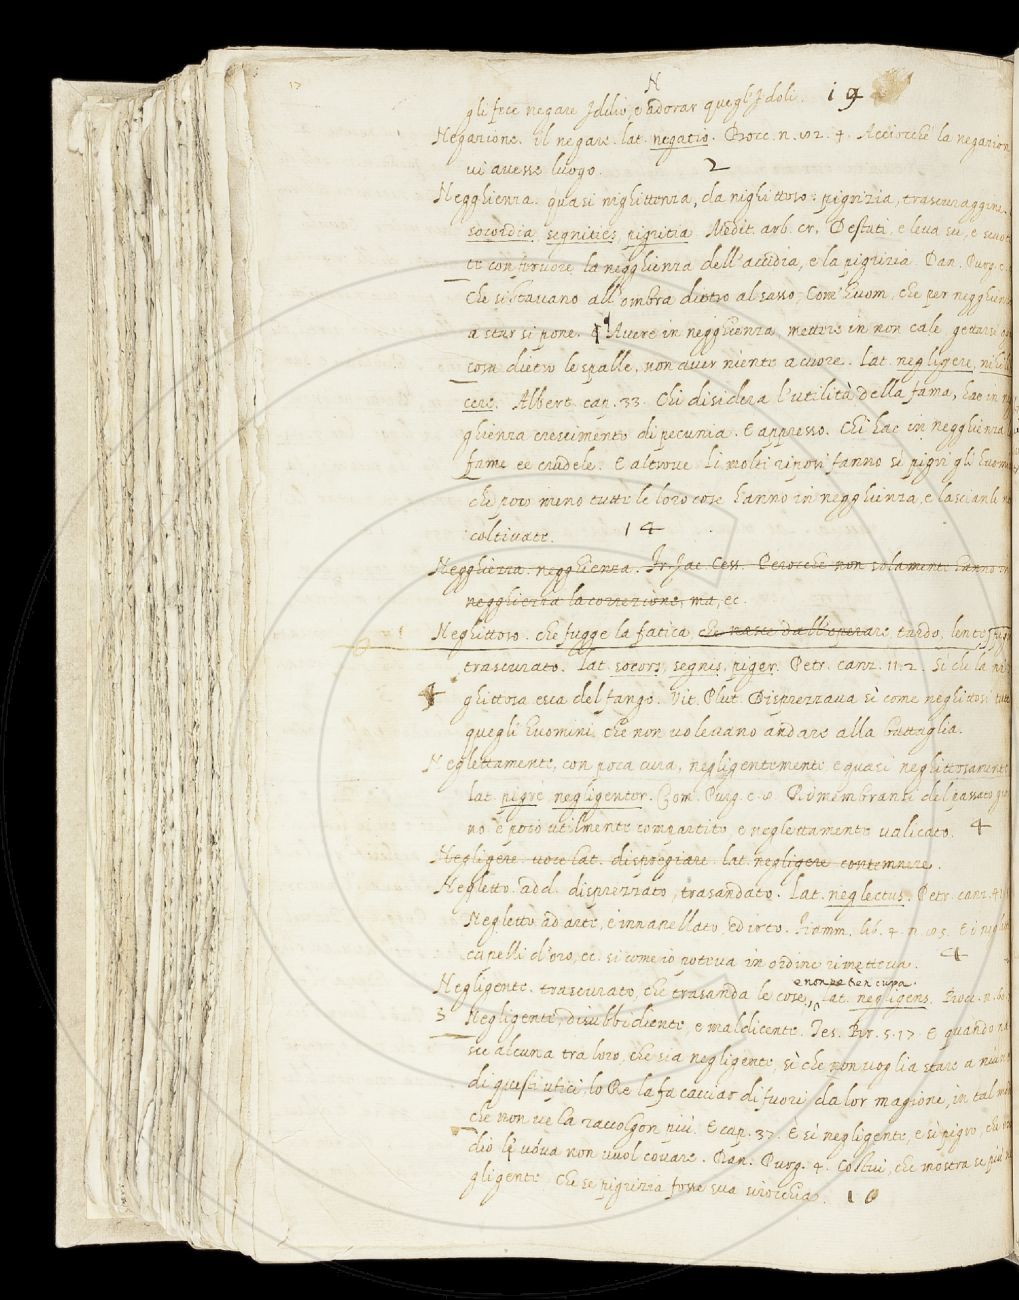 N
gli fece negare Iddio, e adorar quegl'Idoli. 19
Negazione. il negare. lat. negatio. Bocc. n. 4. Acciocchè la negazion
vi avesse luogo. 2
Negghienza. quasi nighittenza, da nighittoso: pigrizia, trascuraggine.
socordia, segnities, pigritia. Medit. arb. cr. Destati, e leva su, e scuot
te con fervore la negghienza dell'accidia, e la pigrizia. Dan. Purg.
Che si stavano all'ombra dietro al sasso, Com'huom, che per negghien
a star si pone. Avere in negghienza, mettere in non cale, gettarsi
cosa dietro le spalle, non aver niente a cuore. Lat. negligere, nihili
cere. Albert. cap. 33. Chi disidera l'utilità della fama, hae in
ghienza crescimento di pecunia. E appresso. Chi hae in negghienza
fame ee crudele. E altrove. Li molti riposi fanno sì pigri gli huom
che poco meno tutte le loro cose hanno in negghienza, e lascianle
coltivate. 14
Negghiezza. negghienza. Fr. Jac. Cess. Perocchè non solamente hanno in
negghiezza la correzione, ma, ec.
Neghittoso. che fugge la fatica, che nasce dall'operare, tardo, lento,
trascurato. Lat. socors, segnis, piger. Petr. canz. 11. 2. Sì che la
ghittosa esca del fango. Vit. Plut. Disprezzava sì come neghittosi
quegli huomini, che non volevano andare alla battaglia.
Neglettamente, con poca cura, negligentemente e quasi neghittosamente
lat. pigre, negligenter. Com. Purg. c. Rimembransi del passato
no è poco utilmente compartito, e neglettamente valicato. 4
Negligere. voce lat. dispregiare. lat. negligere contemnere.
Negletto. add. disprezzato, trasandato. Lat. neglectus. Petr. canz.
Negletto ad arte, e innanellato, ed irto. Fiamm. lib. 4. n. E i
capelli d'oro, ec. si come io poteva in ordine rimetteva. 4
e non se ben cura.
Negligente. trascurato, che trasanda le cose, lat. negligens. Bocc. n.
3 Negligente, disubbidiente, e maldicente. Tes. Br. 5. 17. E quando
sce alcuna tra loro, che sia negligente, sì che non voglia stare a
di questi ufici, lo Re la fa cacciar di fuori da lor magione, in tal
che non ve la raccolgon più. E cap. 37. E sì negligente, e sì pigro, che
dio le uova non vuol covare. Dan. Purg. 4. Colui, che mostra sè più
gligente Che se pigrizia fosse sua sirocchia. 10